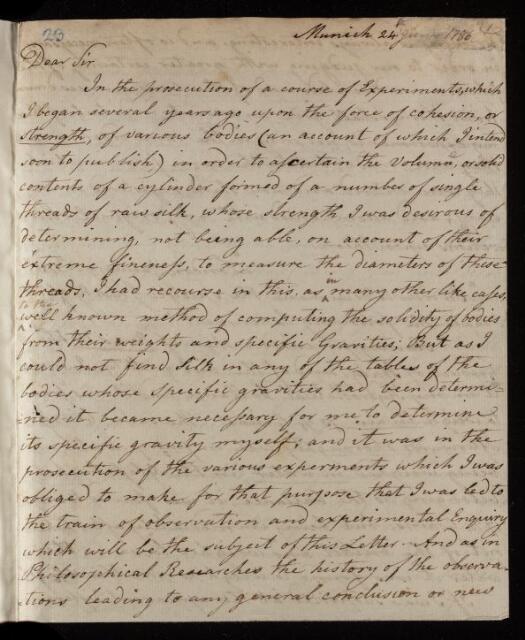 23
Munich 24th June 1786
Dear Sir
In the prosecution of a course of Experiments, which
I began several years ago upon the force of cohesion, or
strength, of various bodies (an account of which I intend
soon to publish) in order to ascertain the volume, or solid
contents of a cylinder formed of a number of single
threads of raw silk, whose strength I was desirous of
determining, not being able, on account of their
extreme fineness, to measure the diameters of these
threads, I had recourse in this, as in many other like cases,
to the well known method of computing the solidity of bodies
from their weights and specific Gravities; But as I
could not find silk in any of the tables of the
bodies whose specific gravities had been determi-
-ned it became necessary for me to determine
its specific gravity myself; and it was in the
prosecution of the various experments which I was
obliged to make for that purpose that I was led to
the train of observation and experimental Enquiry
which will be the subject of this Letter. And as in
Philosophical Researches the history of the observa-
-tions leading to any general conclusion or new